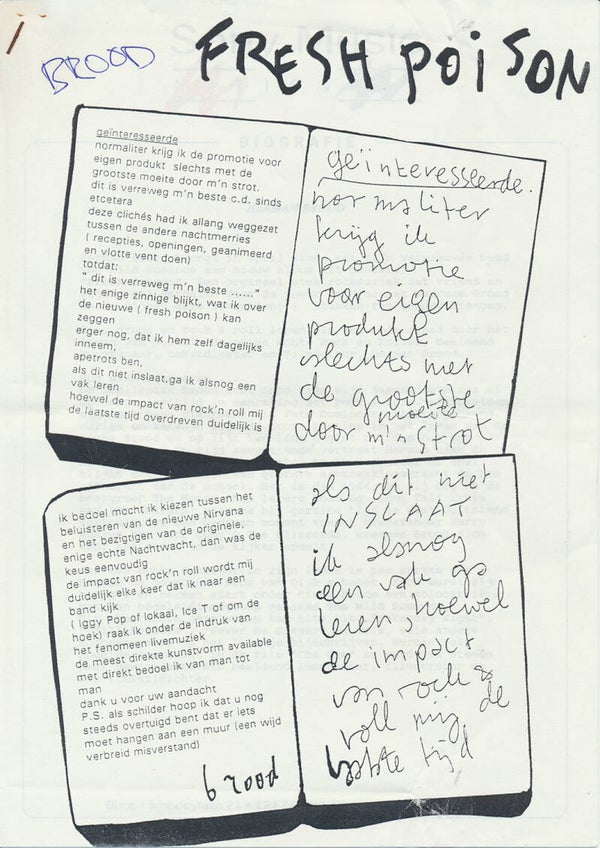 BROOD
FRESH POISON
geïnteresseerde
normaliter krijg ik de promotie voor
eigen produkt slechts met de
grootste moeite door m'n strot.
dit is verreweg m'n beste c.d. sinds
etcetera
deze clichés had ik allang weggezet
tussen de andere nachtmerries
( recepties, openingen, geanimeerd
en vlotte vent doen)
totdat:
" dit is verreweg m'n beste ......"
het enige zinnige blijkt, wat ik over
de nieuwe ( fresh poison ) kan
zeggen
erger nog, dat ik hem zelf dagelijks
inneem,
apetrots ben,
als dit niet inslaat,ga ik alsnog een
vak leren
hoewel de impact van rock'n roll mij
de laatste tijd overdreven duidelijk is
geïnteresseerde.
normaliter
krijg ik
promotie
voor eigen
produkt
slechts met
de grootste
moeite
door m'n strot
ik bedoel mocht ik kiezen tussen het
beluisteren van de nieuwe Nirvana
en het bezigtigen van de originele,
enige echte Nachtwacht, dan was de
keus eenvoudig
de impact van rock'n roll wordt mij
duidelijk elke keer dat ik naar een
band kijk
( Iggy Pop of lokaal, Ice T of om de
hoek) raak ik onder de indruk van
het fenomeen livemuziek
de meest direkte kunstvorm available
met direkt bedoel ik van man tot
man
dank u voor uw aandacht
P.S. als schilder hoop ik dat u nog
steeds overtuigd bent dat er iets
moet hangen aan een muur (een wijd
verbreid misverstand)
brood
als dit niet
INSLAAT
ik alsnog
een vak ga
leren, hoewel
de impact
van rock &
roll mij de
laatste tijd